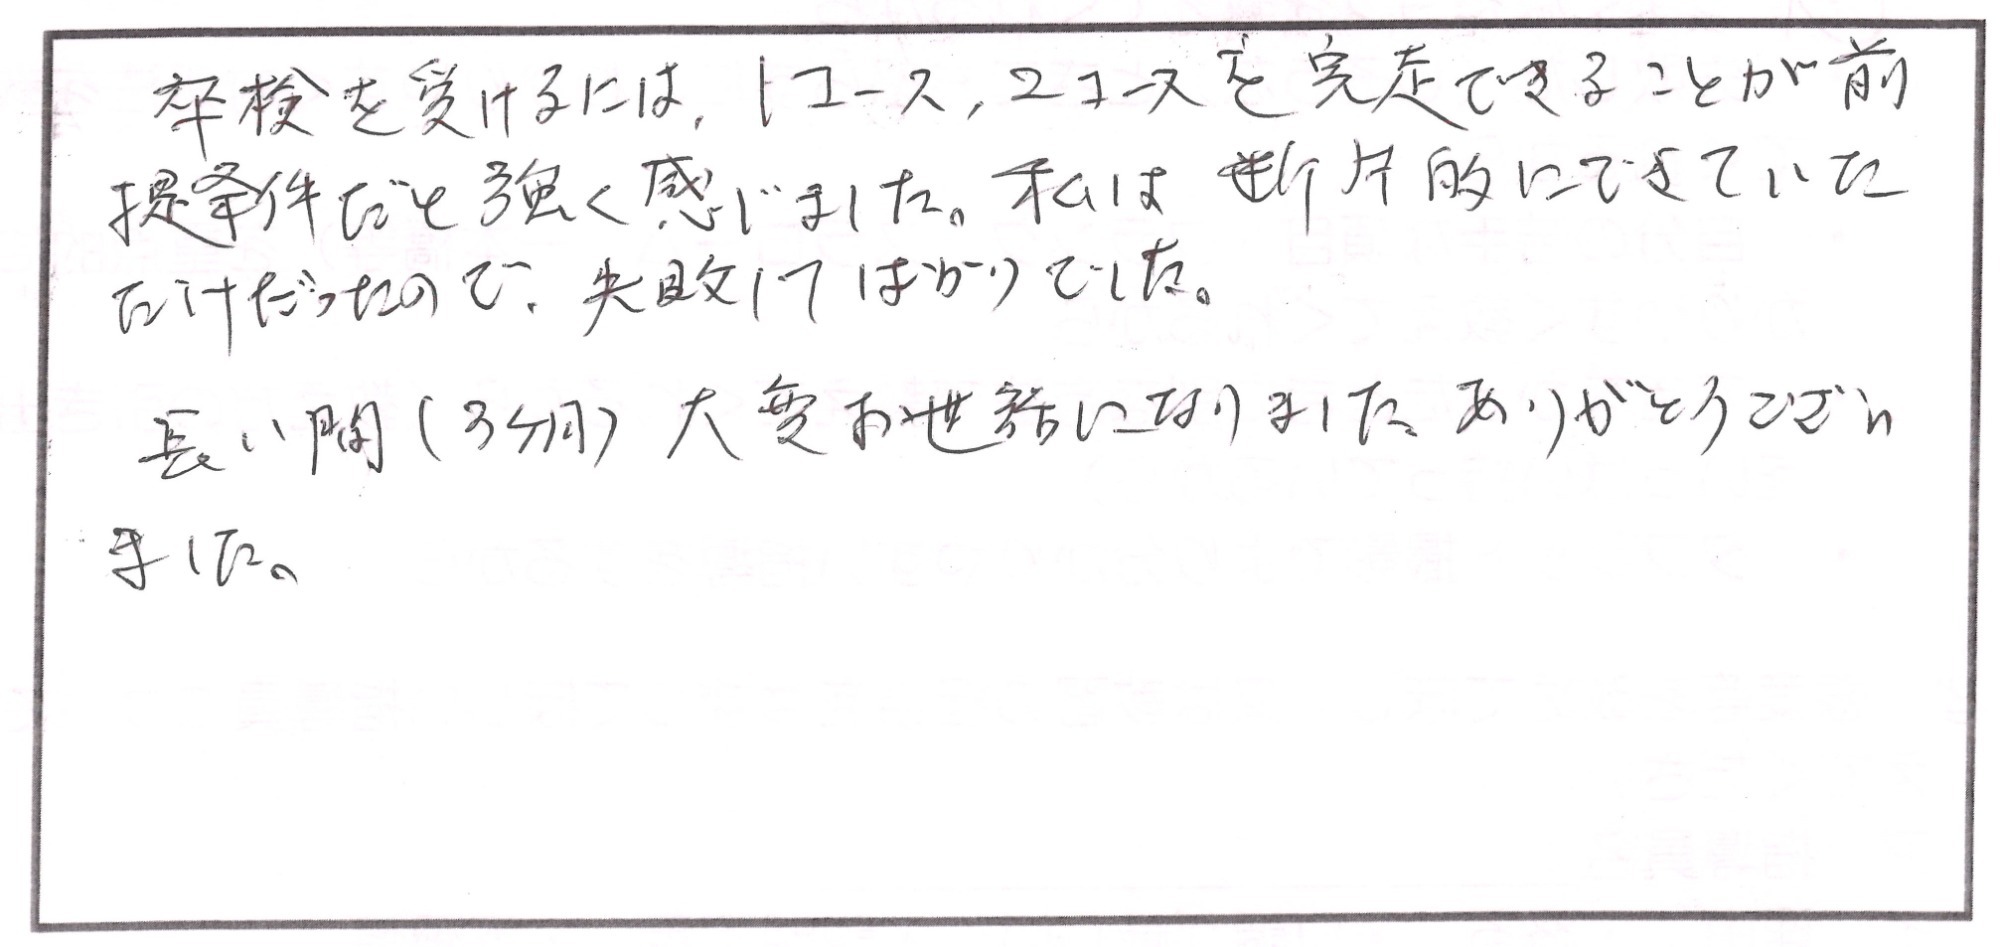 卒検を受けるには、1コース、2コースを完走できることが前
提条件だと強く感じました。私は断片的にできていた
だけだったので、失敗してばかりでした。
長い間(3ヶ月)大変お世話になりました ありがとうござい
ました。